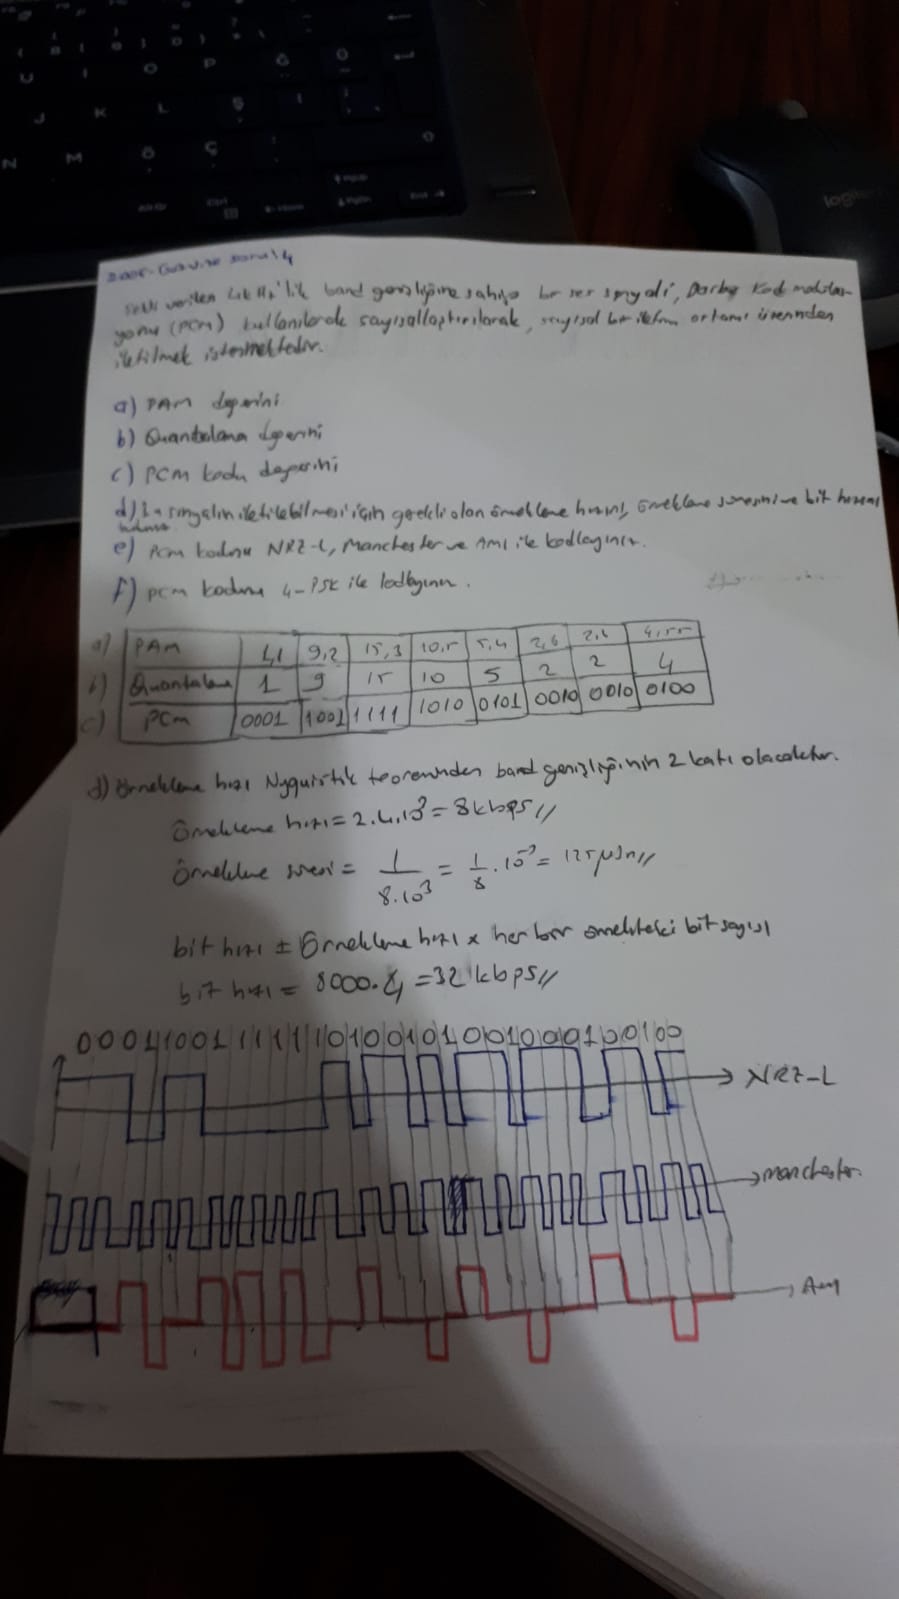 Şekli verilen 4kHz'lik band genişliğine sahip bir ses sinyali, Darbe Kod modülas-
yonu (PCM) kullanılarak sayısallaştırılarak, sayısal bir iletim ortamı üzerinden
iletilmek istenmektedir.
a) PAM değerini
b) Quantalama değerini
c) PCM kodu değerini
d) sinyalin iletilebilmesi için gerekli olan örnekleme hızını, örnekleme süresini ve bit hızını
e) PCM kodunu NRZ-L, Manchester ve AMI ile kodlayınız.
f) PCM kodunu 4-PSK ile kodlayınız.
a) PAM 1,1 9,2 15,3 10,5 5,4 2,6 2,6 4,55
b) Quantalama 1 9 15 10 5 2 2 4
c) PCM 0001 1001 1111 1010 0101 0010 0010 0100
d) Örnekleme hızı Nyquistik teoreminden band genişliğinin 2 katı olacaktır.
Örnekleme hızı = 2.4.10³ = 8kbps //
Örnekleme süresi = 1/8.10³ = 1/8 . 10⁻³ = 125 µsn //
bit hızı = Örnekleme hızı x her bir örnekteki bit sayısı
bit hızı = 8000.4 = 32 kbps //
00011001111110100101001000100100
NRZ-L
manchester
AMI
logi